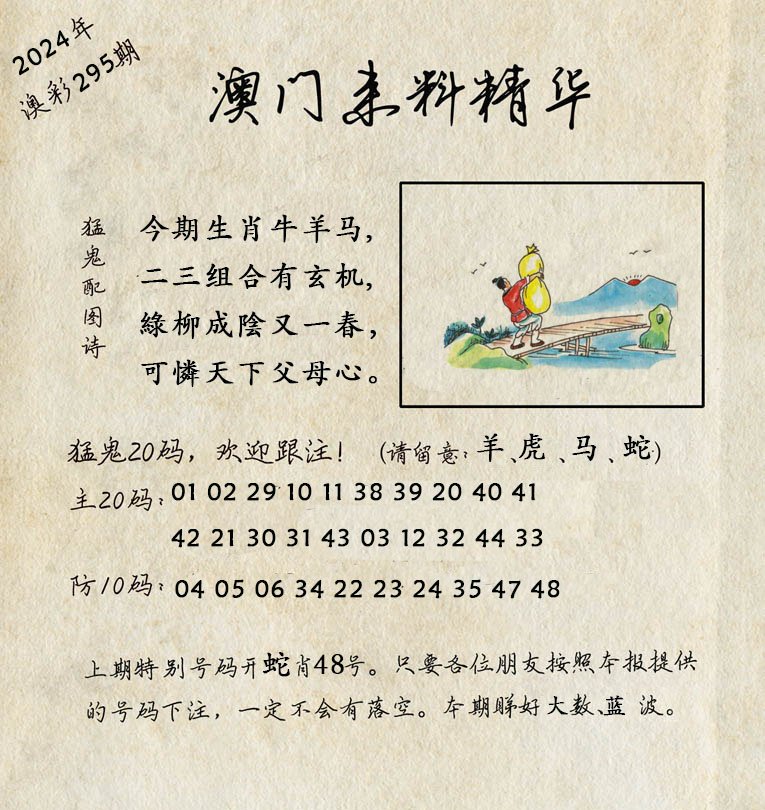 2024年
澳彩295期
澳门来料精华
猛鬼配图诗
今期生肖牛羊马，
二三组合有玄机，
綠柳成陰又一春，
可憐天下父母心。
猛鬼20码，欢迎跟注！（请留意：羊、虎、马、蛇）
主20码：01 02 29 10 11 38 39 20 40 41
42 21 30 31 43 03 12 32 44 33
防10码：04 05 06 34 22 23 24 35 47 48
上期特别号码开蛇肖48号。只要各位朋友按照本报提供
的号码下注，一定不会有落空。本期睇好大数、蓝 波。